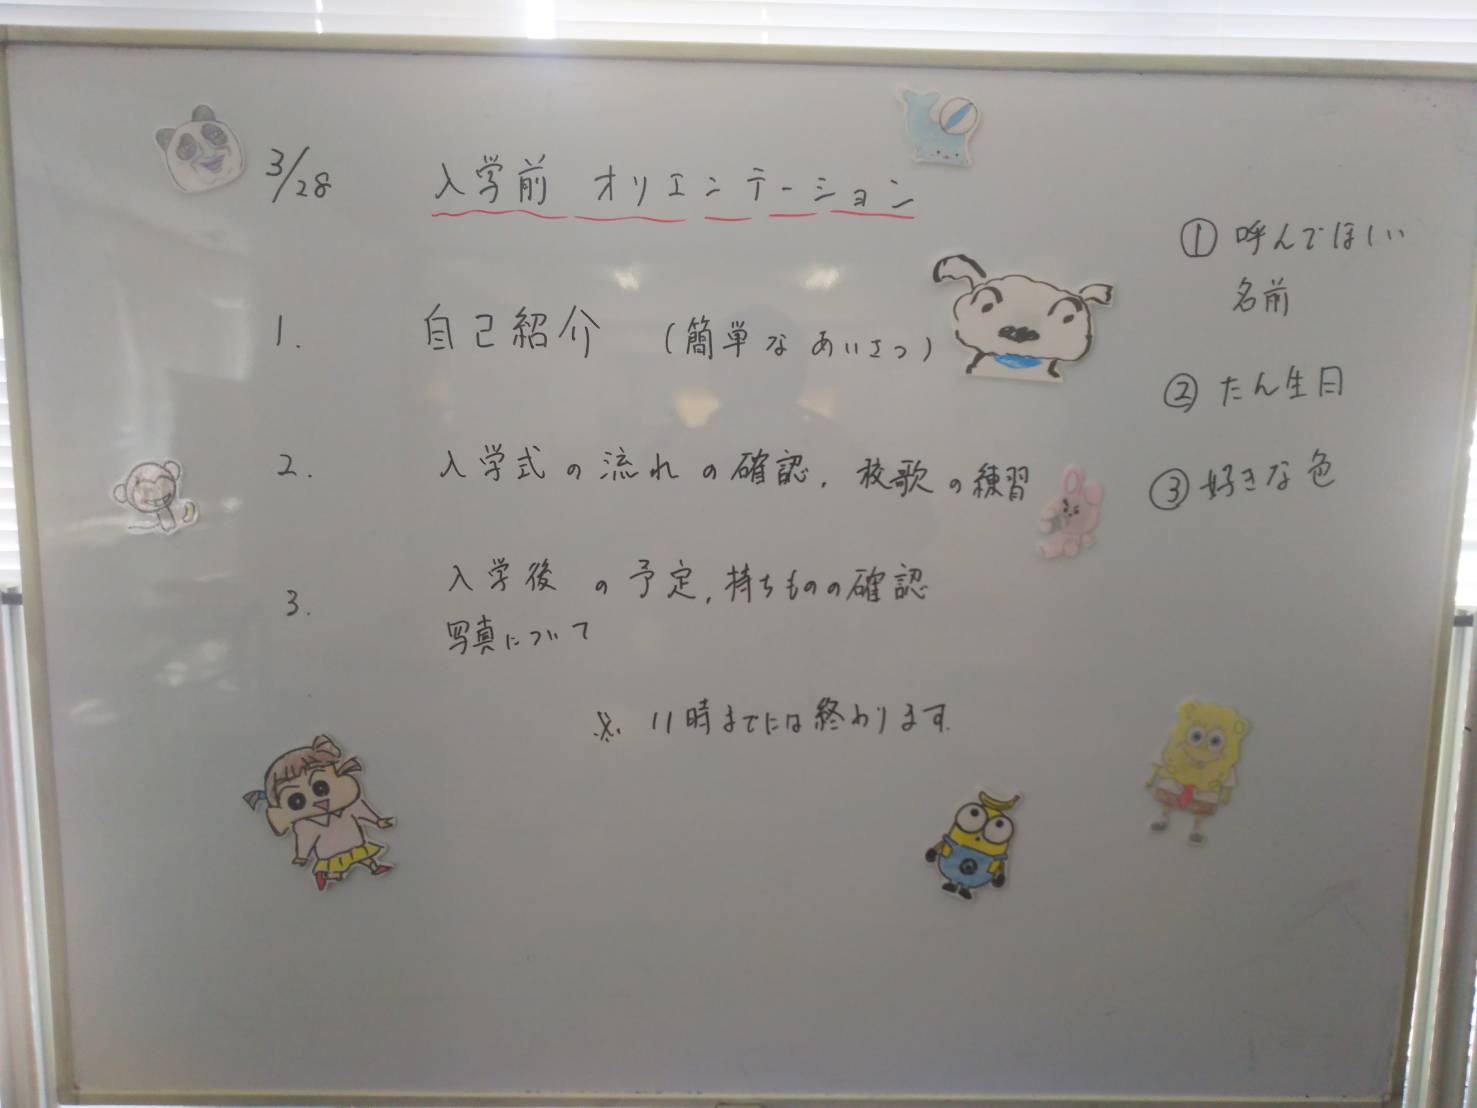 3/28 入学前 オリエンテーション
1. 自己紹介 (簡単なあいさつ)
2. 入学式の流れの確認, 校歌の練習
3. 入学後の予定, 持ちものの確認
写真について
※ 11時までには終わります.
① 呼んでほしい
名前
② たん生日
③ 好きな色